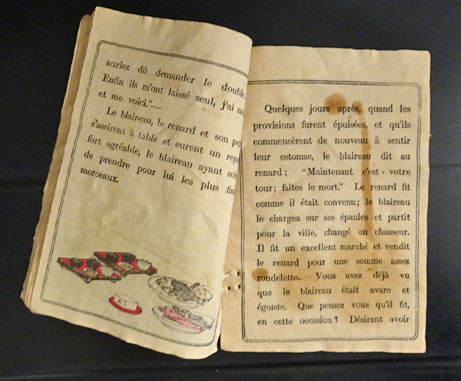 auriez dû demander le double
Enfin ils m'ont laissé seul, j'ai
et me voici."—
Le blaireau, le renard et son
s'assirent à table et eurent un
fort agréable, le blaireau ayant
de prendre pour lui les plus
morceaux.
Quelques jours après, quand les
provisions furent épuisées, et qu'ils
commencèrent de nouveau à sentir
leur estomac, le blaireau dit au
renard: "Maintenant c'est votre
tour; faites le mort." Le renard fit
comme il était convenu; le blaireau
le chargea sur ses épaules et partit
pour la ville, changé en chasseur.
Il fit un excellent marché et vendit
le renard pour une somme assez
rondelette. Vous avez déjà vu
que le blaireau était avare et
égoïste. Que pensez vous qu'il fit,
en cette occasion? Désirant avoir